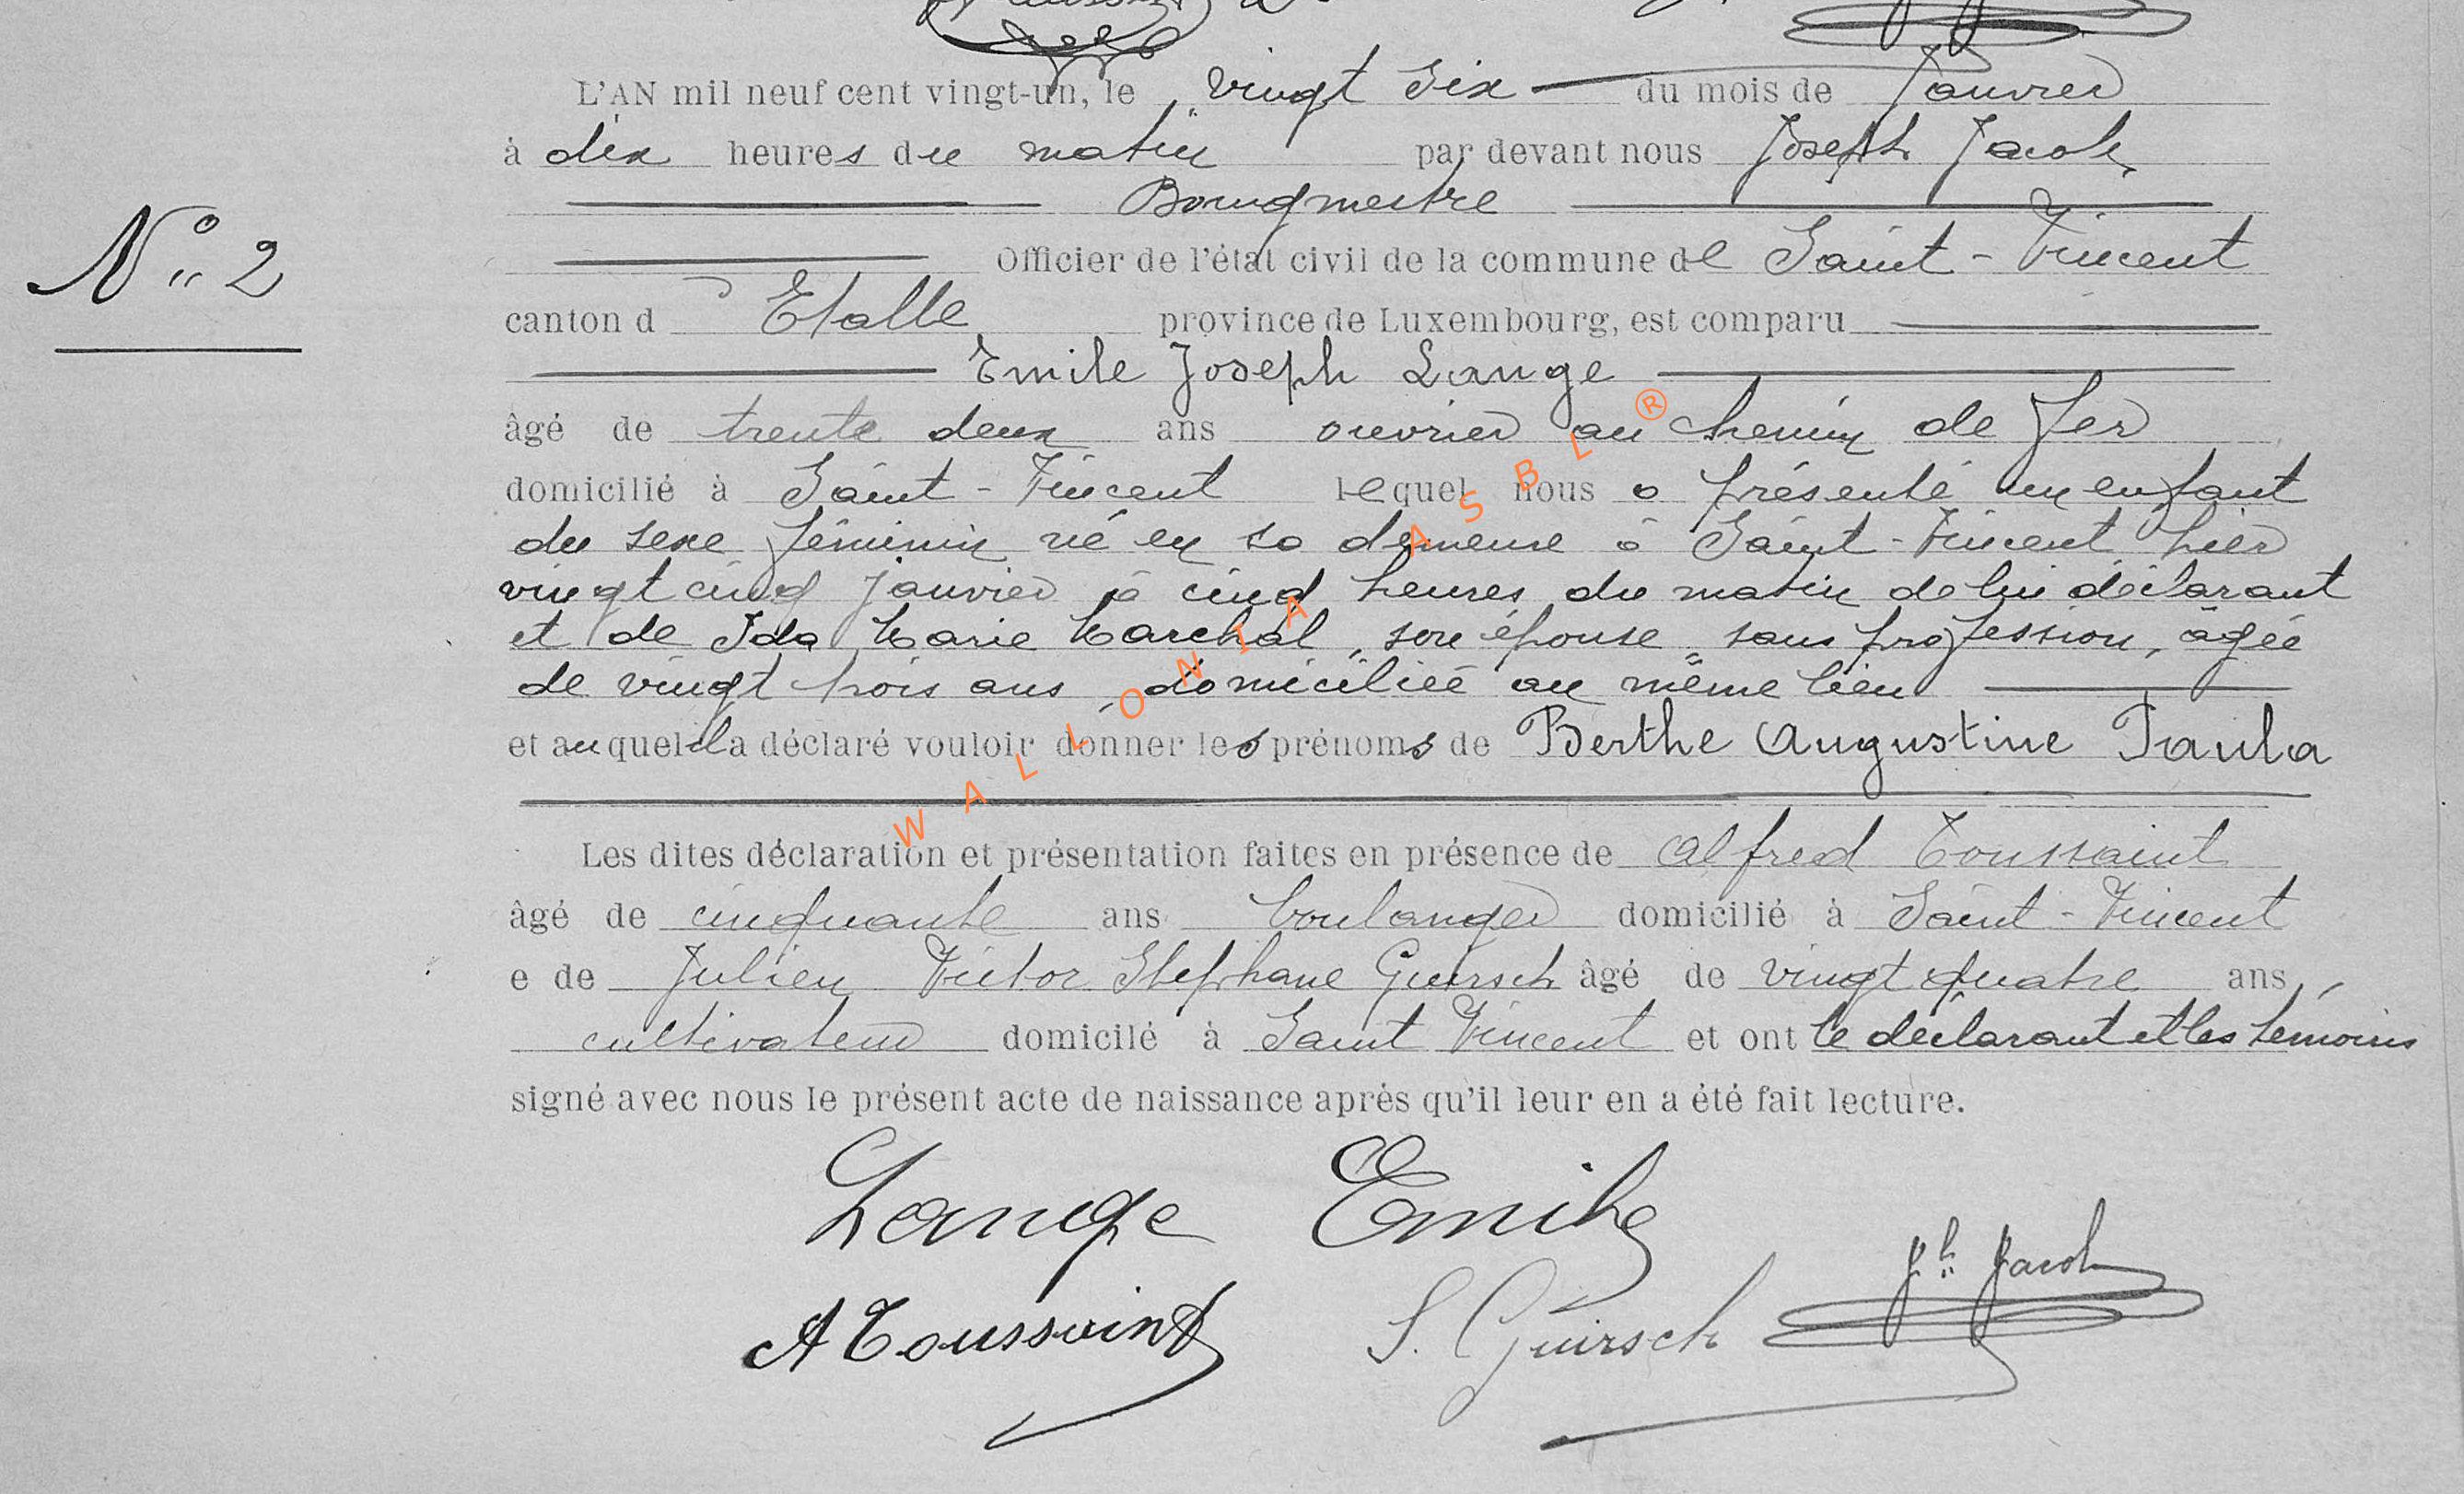 L'AN mil neuf cent vingt-un, le vingt six du mois de Janvier
à dix heures du matin par devant nous Joseph Jacob
Bourgmestre
N° 2
Officier de l'état civil de la commune de Saint-Vincent
canton d Etalle province de Luxembourg, est comparu
Emile Joseph Lange
âgé de trente deux ans ouvrier au chemin de fer
domicilié à Saint-Vincent lequel nous a présenté un enfant
du sexe féminin né en sa demeure à Saint-Vincent hier
vingt cinq janvier à cinq heures du matin de lui déclarant
et de Ida Marie Marchal, son épouse, sans profession, âgée
de vingt trois ans, domiciliée au même lieu
et auquel il a déclaré vouloir donner les prénoms de Berthe Augustine Paula
WALLONIA ASBL ®
Les dites déclaration et présentation faites en présence de Alfred Toussaint
âgé de cinquante ans boulanger domicilié à Saint-Vincent
e de Julien Victor Stéphane Guirsch âgé de vingt quatre ans,
cultivateur domicilé à Saint Vincent et ont le déclarant et les témoins
signé avec nous le présent acte de naissance après qu'il leur en a été fait lecture.
Lange Emile
Jh Jacob
A Toussaint S. Guirsch